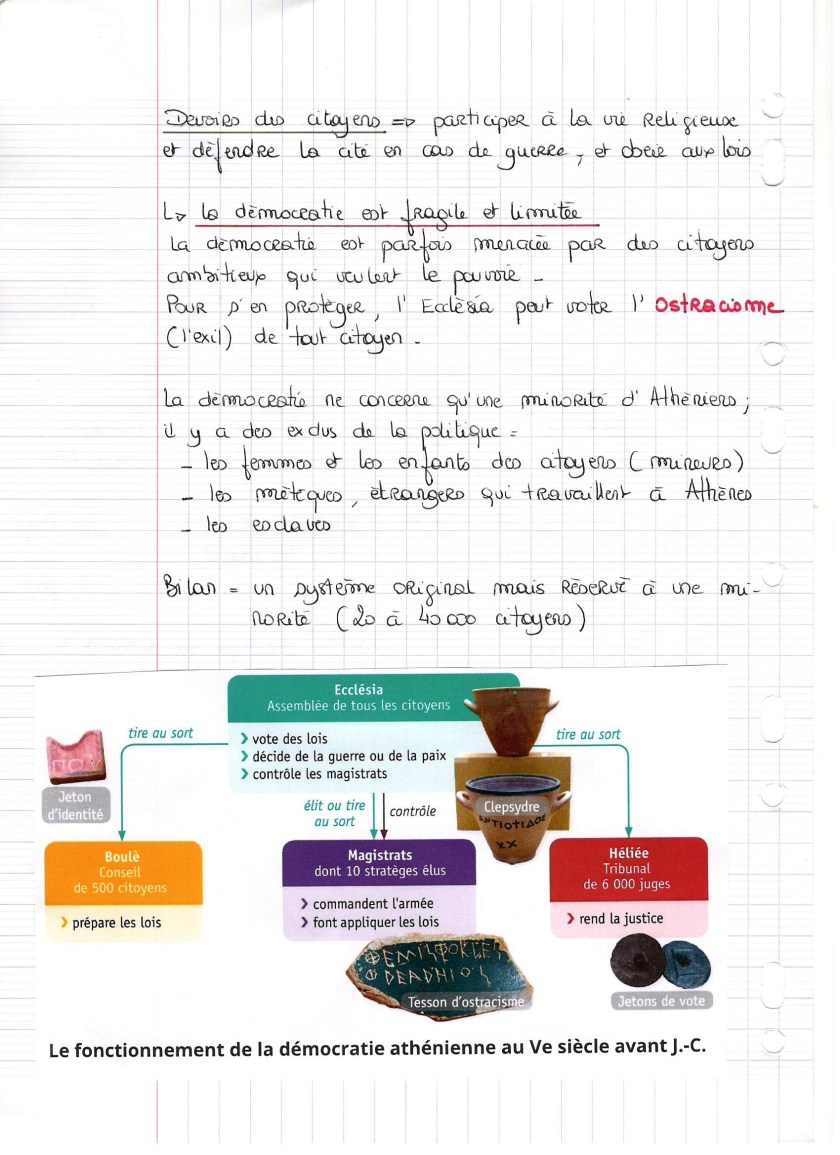 Devoirs des citoyens => participer à la vie Religieuse
et défendre la cité en cas de guerre, et obéir aux lois
L> la démocratie est fragile et limitée
La démocratie est parfois menacée par des citoyens
ambitieux qui veulent le pouvoir -
Pour s'en protéger, l'Ecclésia peut voter l'Ostracisme
(l'exil) de tout citoyen.
La démocratie ne concerne qu'une minorité d'Athéniens ;
il y a des exclus de la politique =
- les femmes et les enfants des citoyens (mineurs)
- les métèques, étrangers qui travaillent à Athènes
- les esclaves
Bilan = un système original mais réservé à une mi-
norité (20 à 40 000 citoyens)
Ecclésia
Assemblée de tous les citoyens
vote des lois
décide de la guerre ou de la paix
contrôle les magistrats
tire au sort
tire au sort
Jeton
d'identité
élit ou tire
au sort
contrôle
Clepsydre
ΑΝΤΙΟΤΙΔΟΣ
XX
Boulè
Conseil
de 500 citoyens
prépare les lois
Magistrats
dont 10 stratèges élus
commandent l'armée
font appliquer les lois
Héliée
Tribunal
de 6 000 juges
rend la justice
Tesson d'ostracisme
Jetons de vote
Le fonctionnement de la démocratie athénienne au Ve siècle avant J.-C.